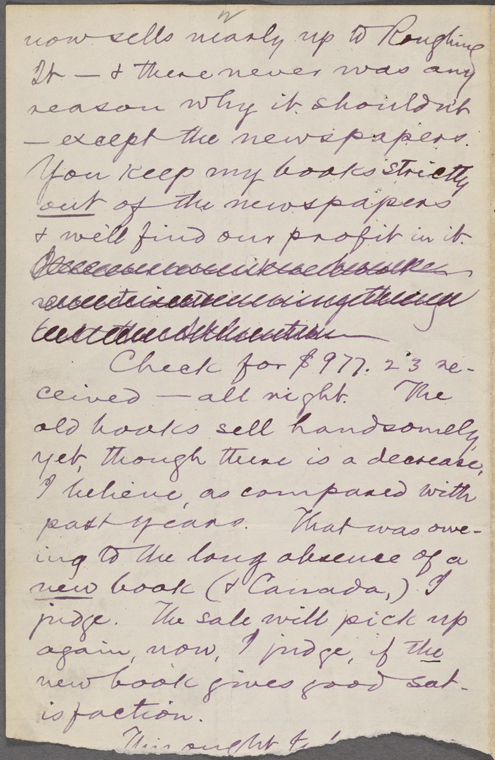 now sells nearly up to Roughing
It — & there never was any
reason why it shouldn't
— except the newspapers.
You keep my books strictly
out of the newspapers
& we'll find our profit in it.
Check for $977.23 re-
ceived — all right. The
old books sell handsomely,
yet, though there is a decrease,
I believe, as compared with
past years. That was ow-
ing to the long absence of a
new book (& Canada,) I
judge. The sale will pick up
again, now, I judge, if the
new book gives good sat-
isfaction.
This ought to